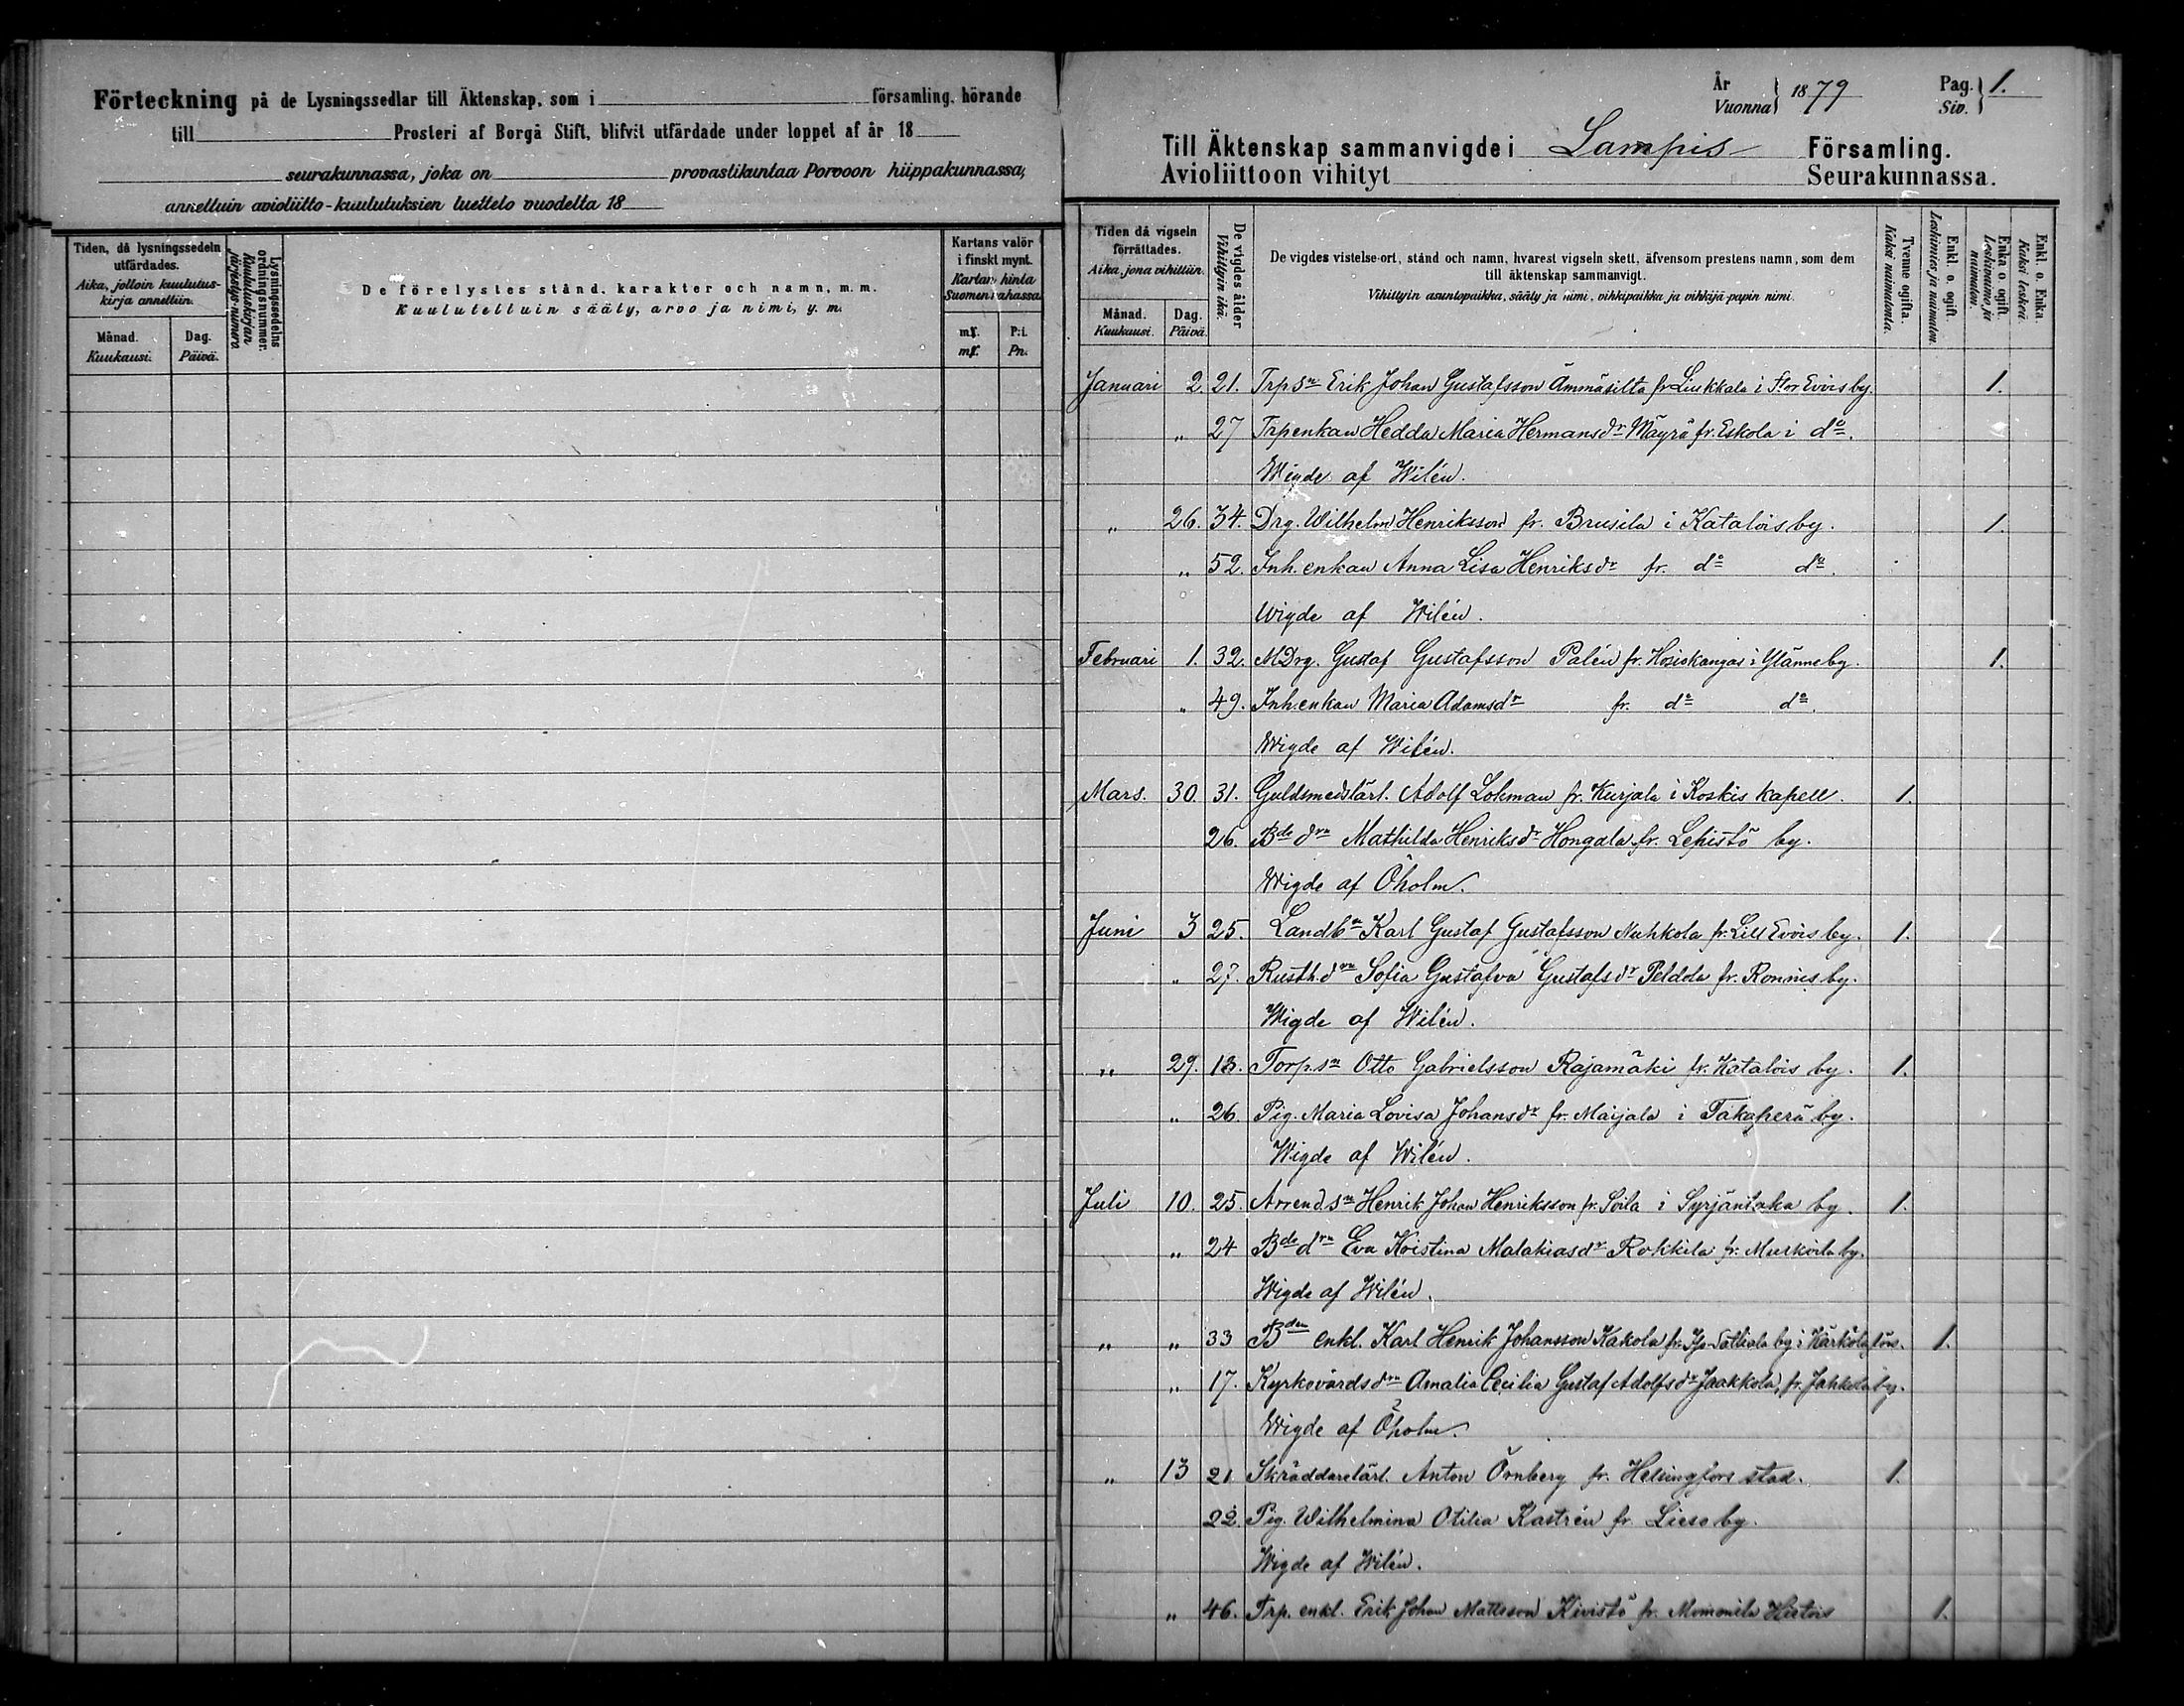 Förteckning på de Lysningssedlar till Äktenskap, som i församling, hörande
till Prosteri af Borgå Stift, blifvit utfärdade under loppet af år 18
seurakunnassa, joka on provastikuntaa Porvoon hiippakunnassa,
annettuin avioliitto-kuulutuksien luettelo vuodelta 18
Tiden, då lysningssedeln utfärdades.
Aika, jolloin kuulutuskirja annettiin.
Månad.
Kuukausi.
Dag.
Päivä.
Lysningssedelns ordningsnummer.
Kuulutuskirjan järjestys-numara
De förelystes stånd, karakter och namn, m. m.
Kuulutettuin sääty, arvo ja nimi, y. m.
Kartans valör i finskt mynt.
Kartan hinta Suomen rahassa
mf. P:i.
mf. Pn.
År
Vuonna 1879
Pag.
Siv. 1.
Till Äktenskap sammanvigde i Lampis Församling.
Avioliittoon vihityt Seurakunnassa.
Tiden då vigseln förrättades.
Aika, jona vihittiin.
Månad.
Kuukausi.
Dag.
Päivä.
De vigdes ålder
Vihittyin ikä.
De vigdes vistelse-ort, stånd och namn, hvarest vigseln skett, äfvensom prestens namn, som dem
till äktenskap sammanvigt.
Vihittyin asuntopaikka, sääty ja nimi, vihkipaikka ja vihkijä-papin nimi.
Tvenne ogifta.
Kaksi naimatonta.
Enkl. o. ogift.
Leskimies ja naimaton.
Enka o ogift.
Leskivaimo ja naimaton.
Enkl. o. Enka.
Kaksi leskeä.
Januari 2. 21. Trpsn Erik Johan Gustafsson Ämmäsilta fr. Liukkala i Stor Evois by. 1.
" 27 Trpenkan Hedda Maria Hermansdr Mäyrä fr. Eskola i do.
Wigde af Wilén.
" 26. 34. Drg. Wilhelm Henriksson fr. Brusila i Katalois by. 1.
" 52. Inh. enkan Anna Lisa Henriksdr fr. do do.
Wigde af Wilén.
Februari 1. 32. MDrg. Gustaf Gustafsson Palén fr. Hosiokangas i Ylänne by. 1.
" 49. Inh. enkan Maria Adamsdr fr. do do.
Wigde af Wilén.
Mars. 30. 31. Guldsmedslärl. Adolf Lokman fr. Kurjala i Koskis kapell. 1.
26. Bde drn Mathilda Henriksdr Hongala fr. Lepistö by.
Wigde af Öholm.
Juni 3 25. Landbn Karl Gustaf Gustafsson Nuhkola fr. Lill Evois by. 1.
" 27. Rusth. drn Sofia Gustafva Gustafsdr Peldola fr. Ronnis by.
Wigde af Wilén.
" 29. 18. Torp. sn Otto Gabrielsson Rajamäki fr. Katalois by. 1.
" 26. Pig. Maria Lovisa Johansdr fr. Maijala i Takaperä by.
Wigde af Wilén.
Juli 10. 25. Arrend. sn Henrik Johan Henriksson fr. Soila i Syrjäntaka by. 1.
" 24 Bde drn Eva Kristina Malakiasdr Rokkila fr. Murkoila by.
Wigde af Wilén.
" " 33 Bden enkl. Karl Henrik Johansson Kakola fr. by i Kärkölä förs. 1.
" 17. Kyrkovärds drn Amalia Cecilia Gustaf Adolfsdr Jaakkola, fr. Jahkola by.
Wigde af Öholm.
" 13 21. Skräddarelärl. Anton Örnberg fr. Helsingfors stad. 1.
22. Pig. Wilhelmina Otilia Kastrén fr. Lieso by.
Wigde af Wilén.
" 46. Trp. enkl. Erik Johan Mattsson Kivistö fr. Mommila 1.